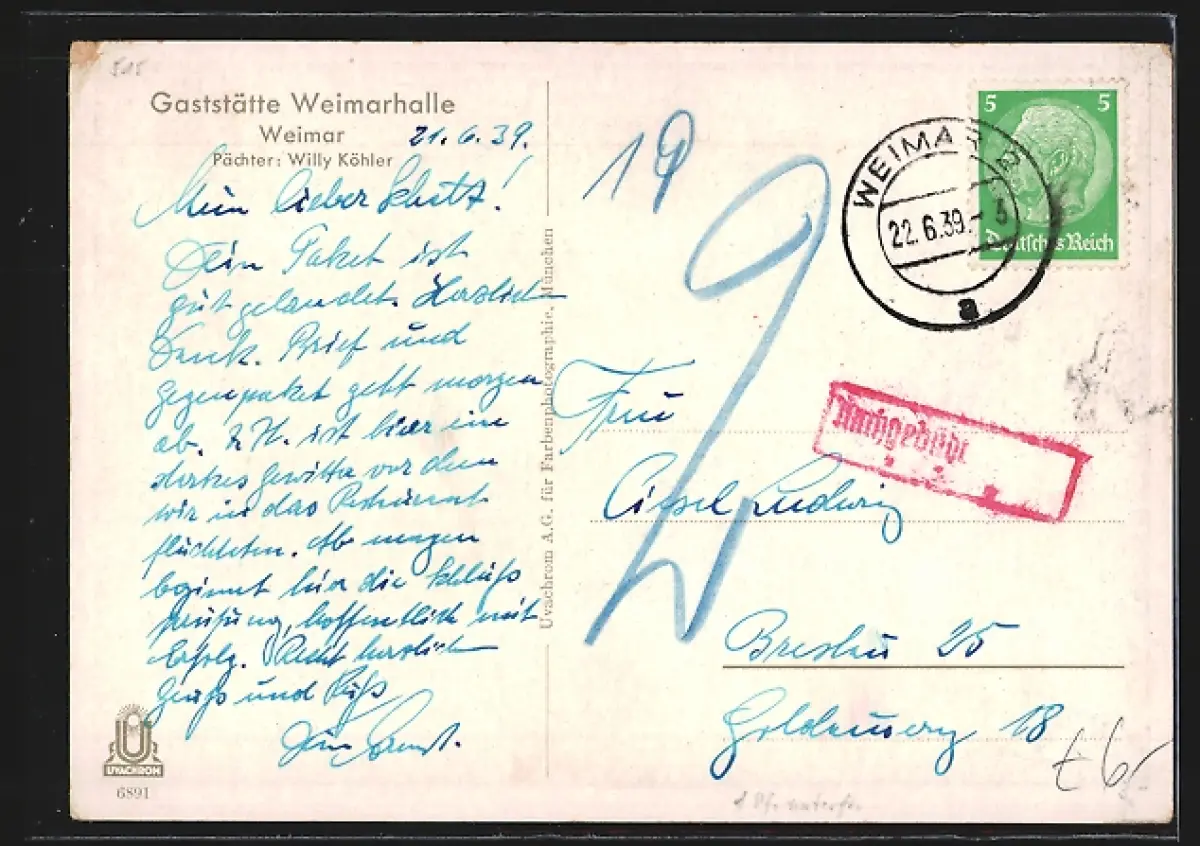 Gaststätte Weimarhalle
Weimar
21.6.39.
Pächter: Willy Köhler
Mein lieber Schatz!
Dein Paket ist
gut gelandet. Herzlich
Dank. Brief und
Gegenpaket geht morgen
ab. z. Zt. ist hier ein
starkes Gewitter vor dem
wir in das Restaurant
flüchteten. Ab morgen
beginnt hier die Schluß
prüfung, hoffentlich mit
Erfolg. Recht herzlich
Gruß und Kuß
Dein Ernst.
UVACHROM
6891
Uvachrom A.G. für Farbenphotographie, München
9
WEIMAR
22.6.39.- 3
a
5 5
Deutsches Reich
Nachgebühr
Frau
Ludwig
Breslau 25
18